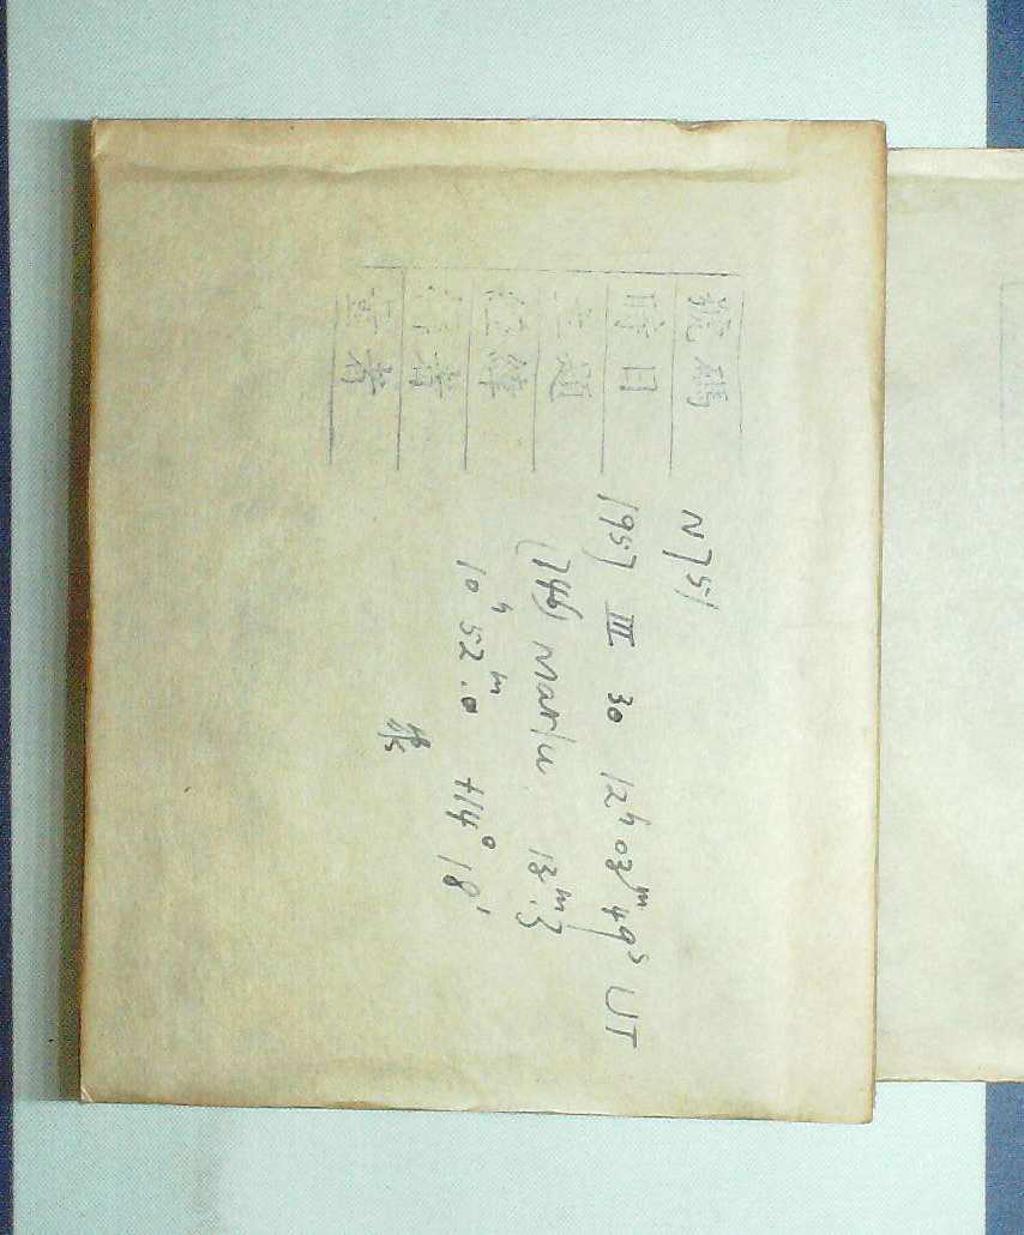 號碼 N751
時日 1957 III 30 12h 03m 49s UT
主題 (746) Marlu 13m.3
經緯 10h 52m.0 +14° 18'
著者